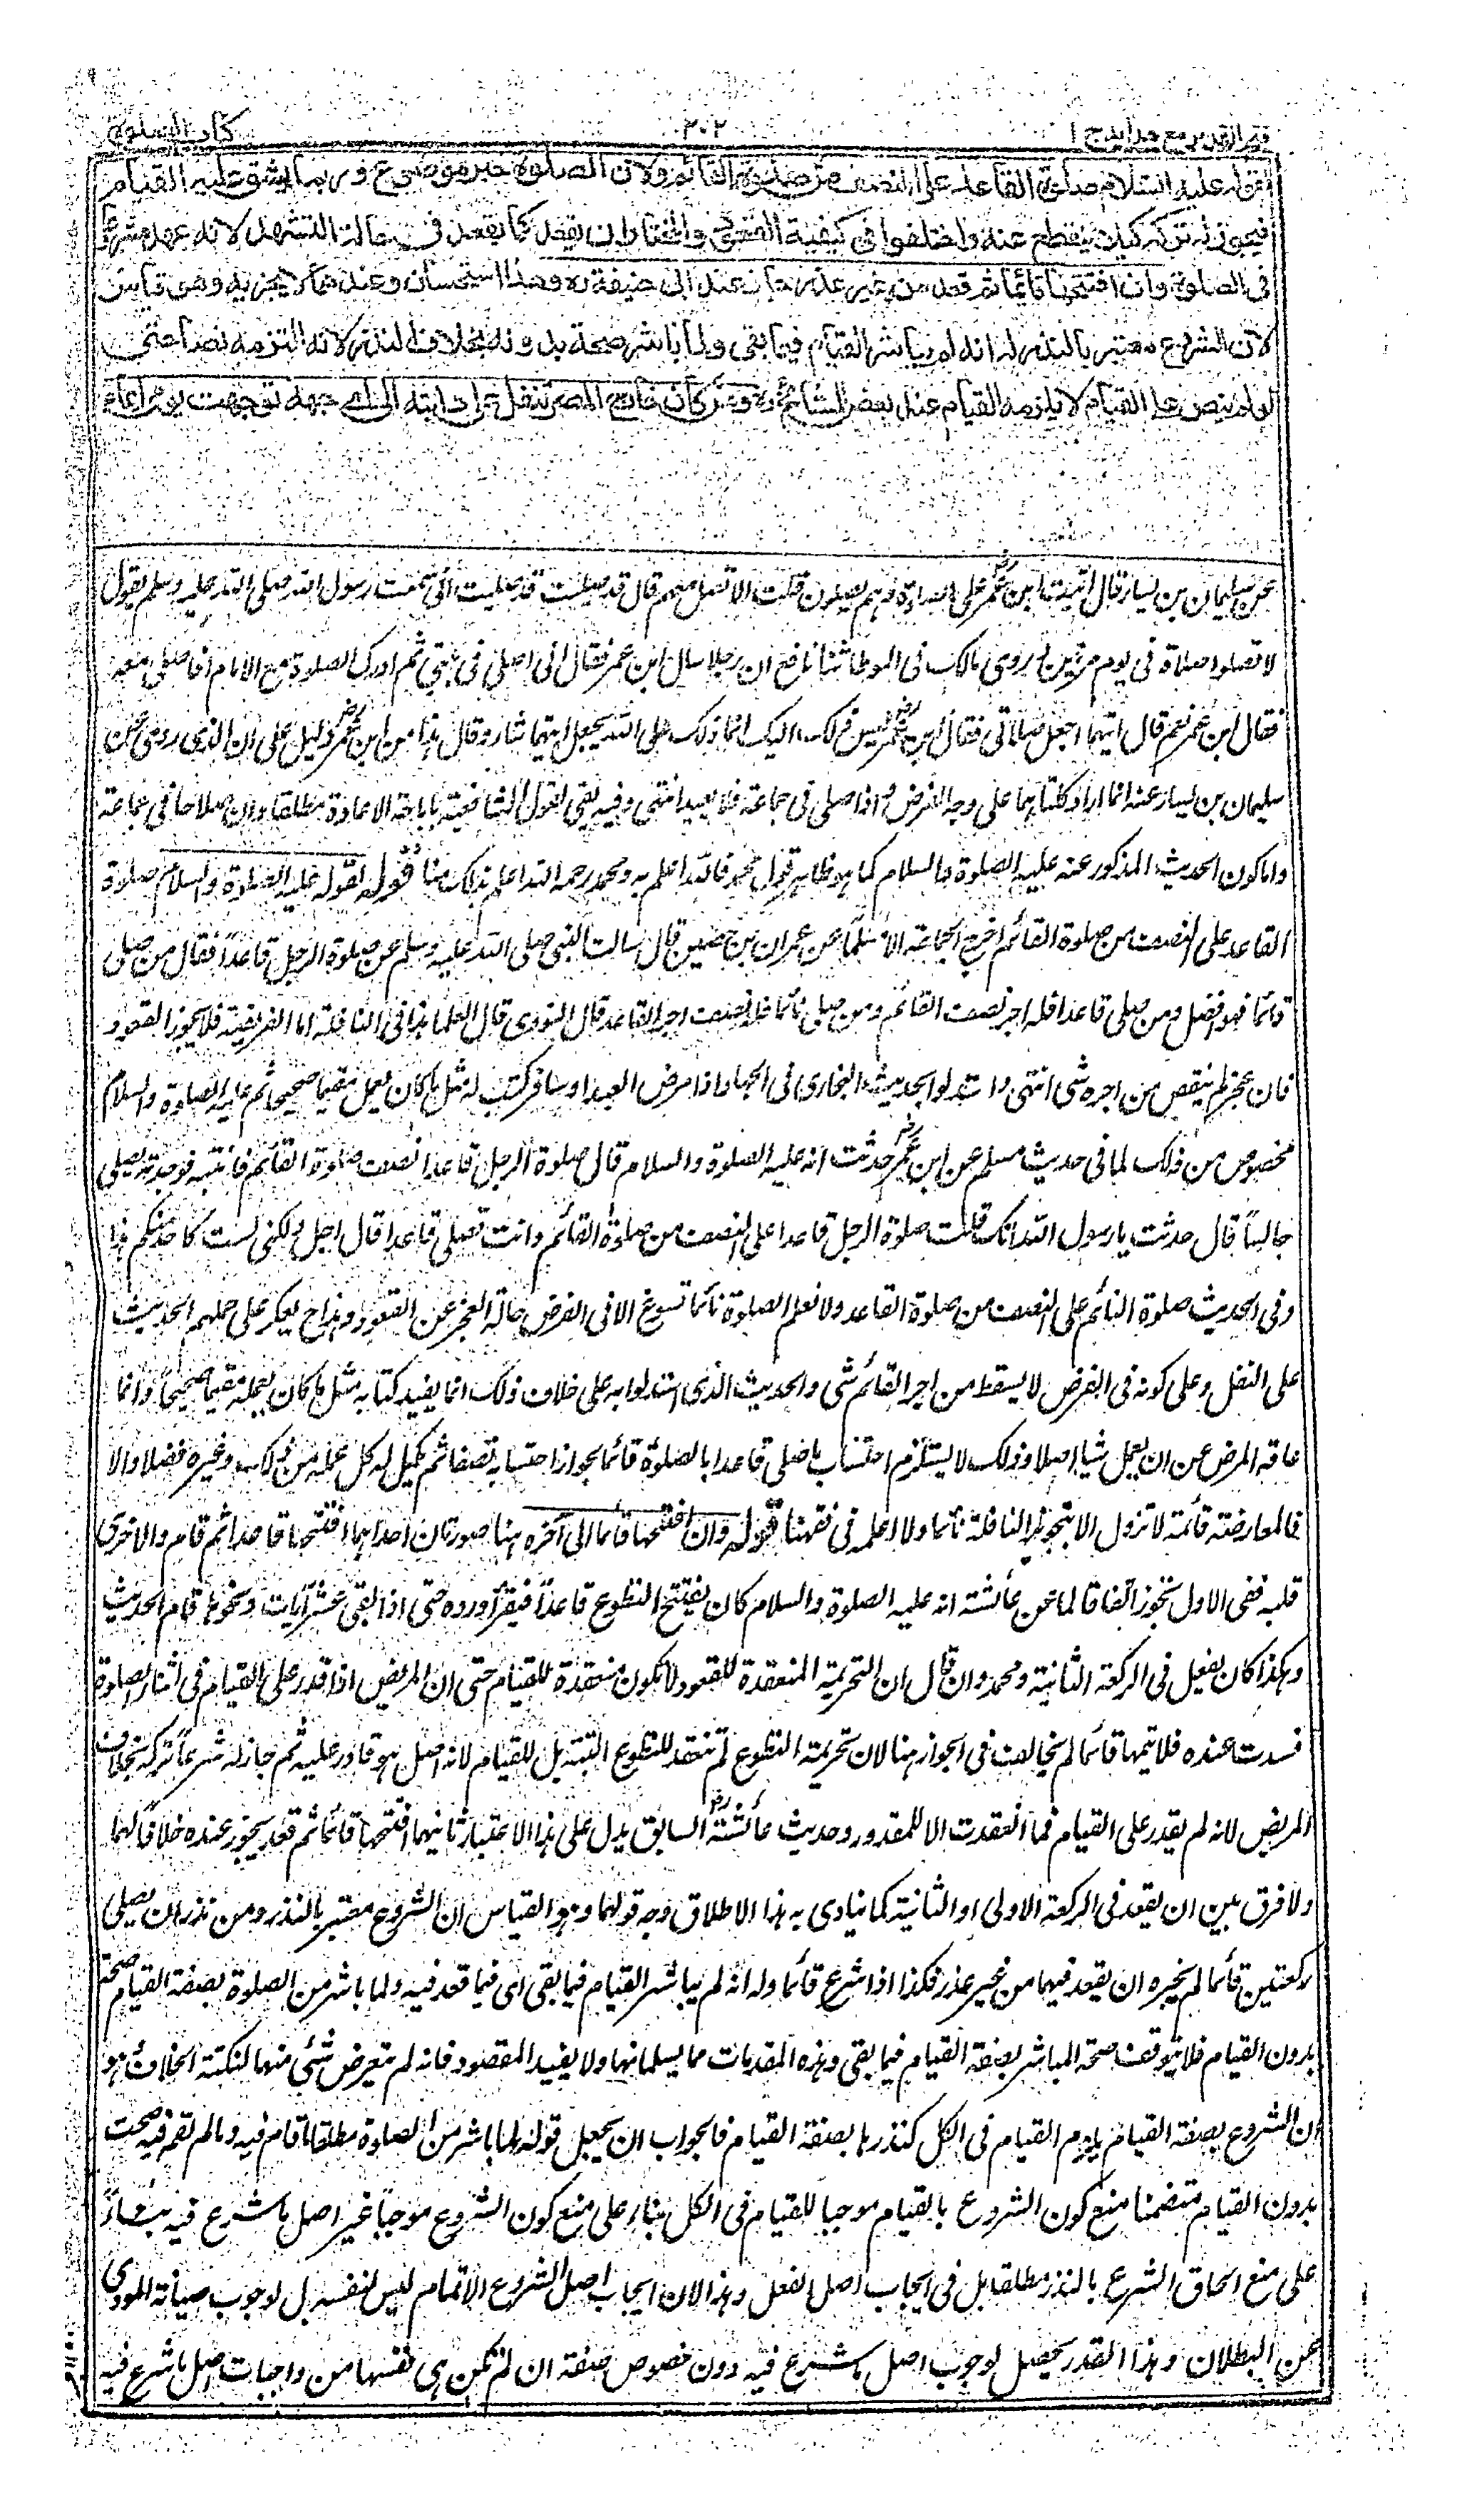 فتح القدير مع هداية ج ا
٢٠٢
كتاب الصلوة
لقوله عليه السلام صلوة القاعد على النصف من صلوة القائم ولان الصلوة خير موضوع وربما يشق عليه القيام
فيجوز له تركه كيلا ينقطع عنه واختلفوا فى كيفية القعود والمختار ان يقعد كما يقعد فى حالة التشهد لانه عهد مشروعا
فى الصلوة وان افتتحها قائما ثم قعد من غير عذر جاز عند ابى حنيفة ره وهذا استحسان وعندهما لا يجزيه وهو قياس
لان الشروع معتبر بالنذر له انه لم يباشر القيام فيما بقى ولما باشر صحة بدونه بخلاف النذر لانه التزمه نصا حتى
لو لم ينص على القيام لا يلزمه القيام عند بعض المشائخ ره ومن كان خارج المصر تنفل على دابته الى اى جهة توجهت يومى ايماء
عن سليمان بن يسار قال اتيت ابن عمر رض على البلاط وهم يصلون قلت الا تصلى معهم قال قد صليت قد صليت انى سمعت رسول الله صلى الله عليه وسلم يقول
لا تصلوا صلاة فى يوم مرتين وروى مالك فى الموطا ثنا نافع ان رجلا سال ابن عمر فقال انى اصلى فى بيتى ثم ادرك الصلوة مع الامام افاصلى معه
فقال ابن عمر نعم قال ايتهما اجعل صلاتى فقال ابن عمر رض ليس ذلك اليك انما ذلك الى الله يجعل ايتهما شاء وقال هذا من ابن عمر رض دليل على ان الذى روى عن
سليمان بن يسار عنه انما اراد كلتاهما على وجه الفرض او اذا صلى فى جماعة فلا يعيد انتهى وفيه نفى لقول الشافعية باباحة الاعادة مطلقا وان صلاها فى جماعة
واما كون الحديث المذكور عنه عليه الصلوة والسلام كما هو ظاهر قول محمد فالله اعلم به ومحمد رحمه الله اعلم بذلك منا قوله لقوله عليه الصلوة والسلام صلوة
القاعد على النصف من صلوة القائم اخرج الجماعة الا مسلما عن عمران بن حصين قال سالت النبى صلى الله عليه وسلم عن صلوة الرجل قاعدا فقال من صلى
قائما فهو افضل ومن صلى قاعدا فله اجر نصف القائم ومن صلى نائما فله نصف اجر القاعد قال النووى قال العلما هذا فى النافلة اما الفريضة فلا يجوز القعود
فان عجز لم ينقص من اجره شى انتهى واستدلوا بحديث البخارى فى الجهاد اذا مرض العبد او سافر كتب له مثل ما كان يعمل مقيما صحيحا ثم عليه الصلوة والسلام
مخصوص من ذلك لما فى حديث مسلم عن ابن عمر رض حدثت انه عليه الصلوة والسلام قال صلوة الرجل قاعدا نصف صلوة القائم فاتيته فوجدته يصلى
جالسا قال حدثت يا رسول الله انك قلت صلوة الرجل قاعدا على النصف من صلوة القائم وانت تصلى قاعدا قال اجل ولكنى لست كاحد منكم هذا
وفى الحديث صلوة النائم على النصف من صلوة القاعد ولا نعلم الصلوة نائما تسوغ الا فى الفرض حالة العجز عن القعود وهذا ح يعكر على حملهم الحديث
على النفل وعلى كونه فى الفرض لا يسقط من اجر القائم شى والحديث الذى استدلوا به على خلاف ذلك انما يفيد كتابة مثل ما كان يعمله مقيما صحيحا وانما
عاقه المرض عن ان يعمل شيا اصلا وذلك لا يستلزم احتساب ما صلى قاعدا بالصلوة قائما لجواز احتسابه نصفا ثم يكمل له كل عمله من ذلك وغيره فضلا والا
فالمعارضة قائمة لا تزول الا بتجويز النافلة نائما ولا اعلمه فى فقهنا قوله وان افتتحها قائما الى آخره هنا صورتان احداهما افتتحها قاعدا ثم قام والاخرى
قلبه ففى الاول تجوز اتفاقا لما عن عائشة انه عليه الصلوة والسلام كان يفتتح التطوع قاعدا فيقرأ ورده حتى اذا بقى عشر آيات ونحوها قام الحديث
وهكذا كان يفعل فى الركعة الثانية ومحمد وان قال ان التحريمة المنعقدة للقعود لا تكون منعقدة للقيام حتى ان المريض اذا قدر على القيام فى اثناء الصلوة
فسدت عنده فلا يتمها قائما لم يخالف فى الجواز هنا لان تحريمة التطوع لم تنعقد للتطوع البتة بل للقيام لانه اصل هو قادر عليه ثم جاز له شرعا تركه بخلاف
المريض لانه لم يقدر على القيام فما انعقدت الا للمقدور وحديث عائشة رض السابق يدل على هذا الاعتبار ثانيهما افتتحها قائما ثم قعد يجوز عنده خلافا لهما
ولا فرق بين ان يقعد فى الركعة الاولى او الثانية كما ينادى به هذا الاطلاق وجه قولهما وهو القياس ان الشروع معتبر بالنذر ومن نذر ان يصلى
ركعتين قائما لم يجزه ان يقعد فيهما من غير عذر فكذا اذا شرع قائما وله انه لم يباشر القيام فيما بقى اى فيما قعد فيه ولما باشر من الصلوة بصفة القيام صحة
بدون القيام فلا يتوقف صحة المباشر بصفة القيام فيما بقى وهذه المقدمات مما يسلمانها ولا يفيد المقصود فانه لم يتعرض شئى منها لنكتة الخلاف وهو
ان الشروع بصفة القيام يلزم القيام فى الكل كنذرها بصفة القيام فالجواب ان يجعل قوله لما باشر من الصلوة مطلقا ما قام فيه وما لم يقم فيه صحت
بدون القيام متضمنا منع كون الشروع بالقيام موجبا للقيام فى الكل بناء على منع كون الشروع موجبا غير اصل ما شرع فيه بناءً
على منع الحاق الشرع بالنذر مطلقا بل فى ايجاب اصل الفعل وهذا لان ايجاب اصل الشروع الاتمام ليس لنفسه بل لوجوب صيانة المودى
عن البطلان وهذا القدر يحصل لوجوب اصل ما شرع فيه دون خصوص صفة ان لم تكن هى نفسها من واجبات اصل ما شرع فيه